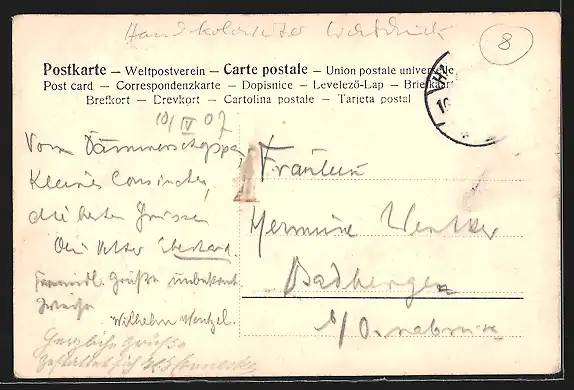 Handkolorierter Lichtdruck
8
Postkarte – Weltpostverein – Carte postale – Union postale universelle
Post card – Correspondenzkarte – Dopisnice – Levelező-Lap – Briefkaart
Brefkort – Brevkort – Cartolina postale – Tarjeta postal
10/IV 07
Vom Dämmerschoppen,
Kleines Cousinchen,
die besten Grüsse
Dein Vetter Eberhard
Freundl. Grüße unbekannt.
Weise
Wilhelm Wentzel.
Herzliche Grüße
gestattet sich
Fräulein
Hermine Wentker
Badbergen
b/Osnabrück